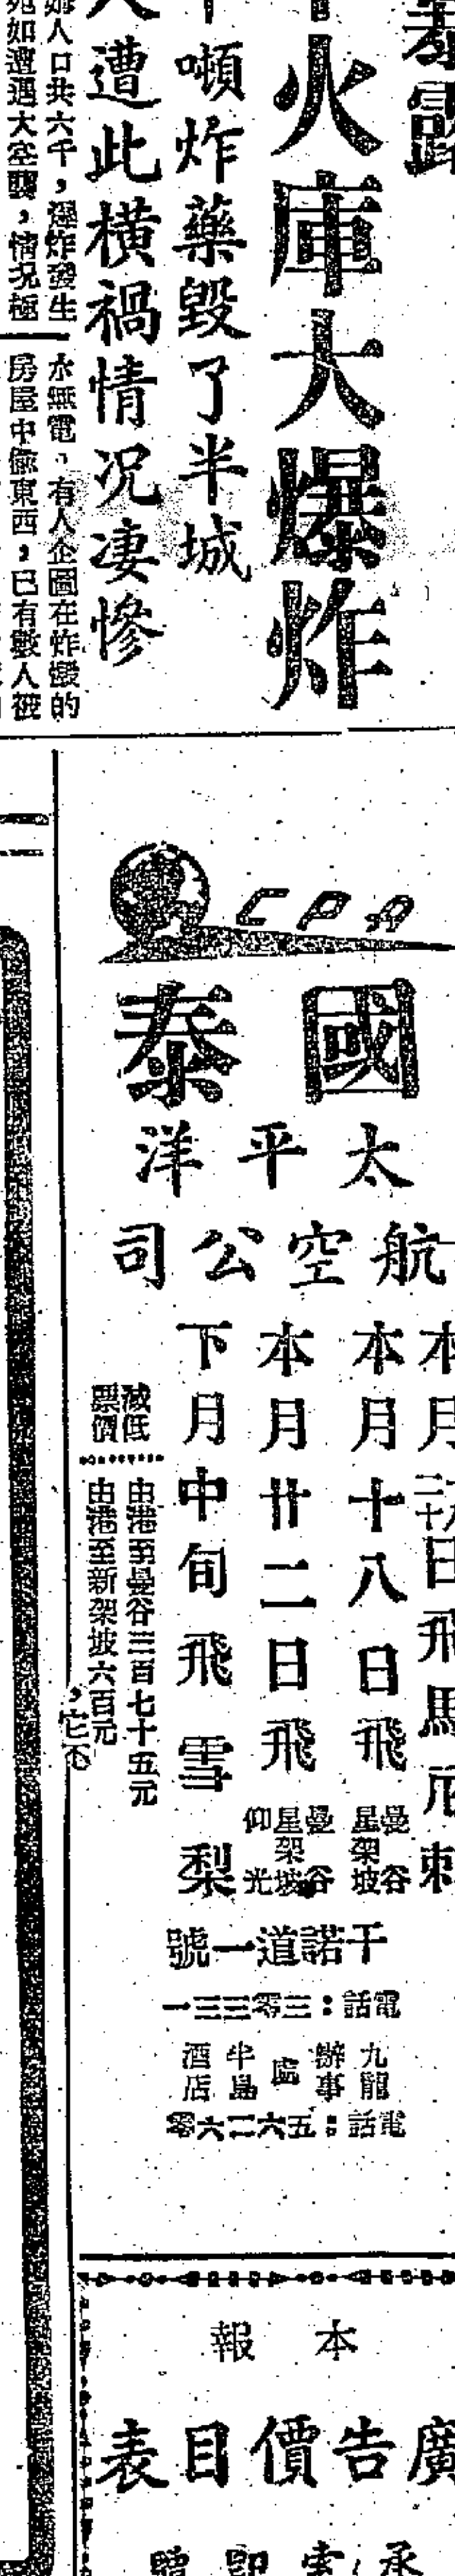 暴露
火庫大爆炸
噸炸藥毀了半城
遭此橫禍情况凄慘
人口共六千，爆炸發生
宛如遭遇大空襲，情况極
水無電，有人企圖在炸燬的
房屋中偷東西，已有數人被
CPA
國泰
太平洋
航空公司
本月十八日飛馬尼剌
本月十八日飛曼谷星架坡
本月廿二日飛曼谷星架坡仰光
下月中旬飛雪梨
減低票價
由港至曼谷三百七十五元
由港至新架坡六百元
干諾道一號
電話：三零三三一
九龍辦事處半島酒店
電話：五六二六零
本報
廣告價目表